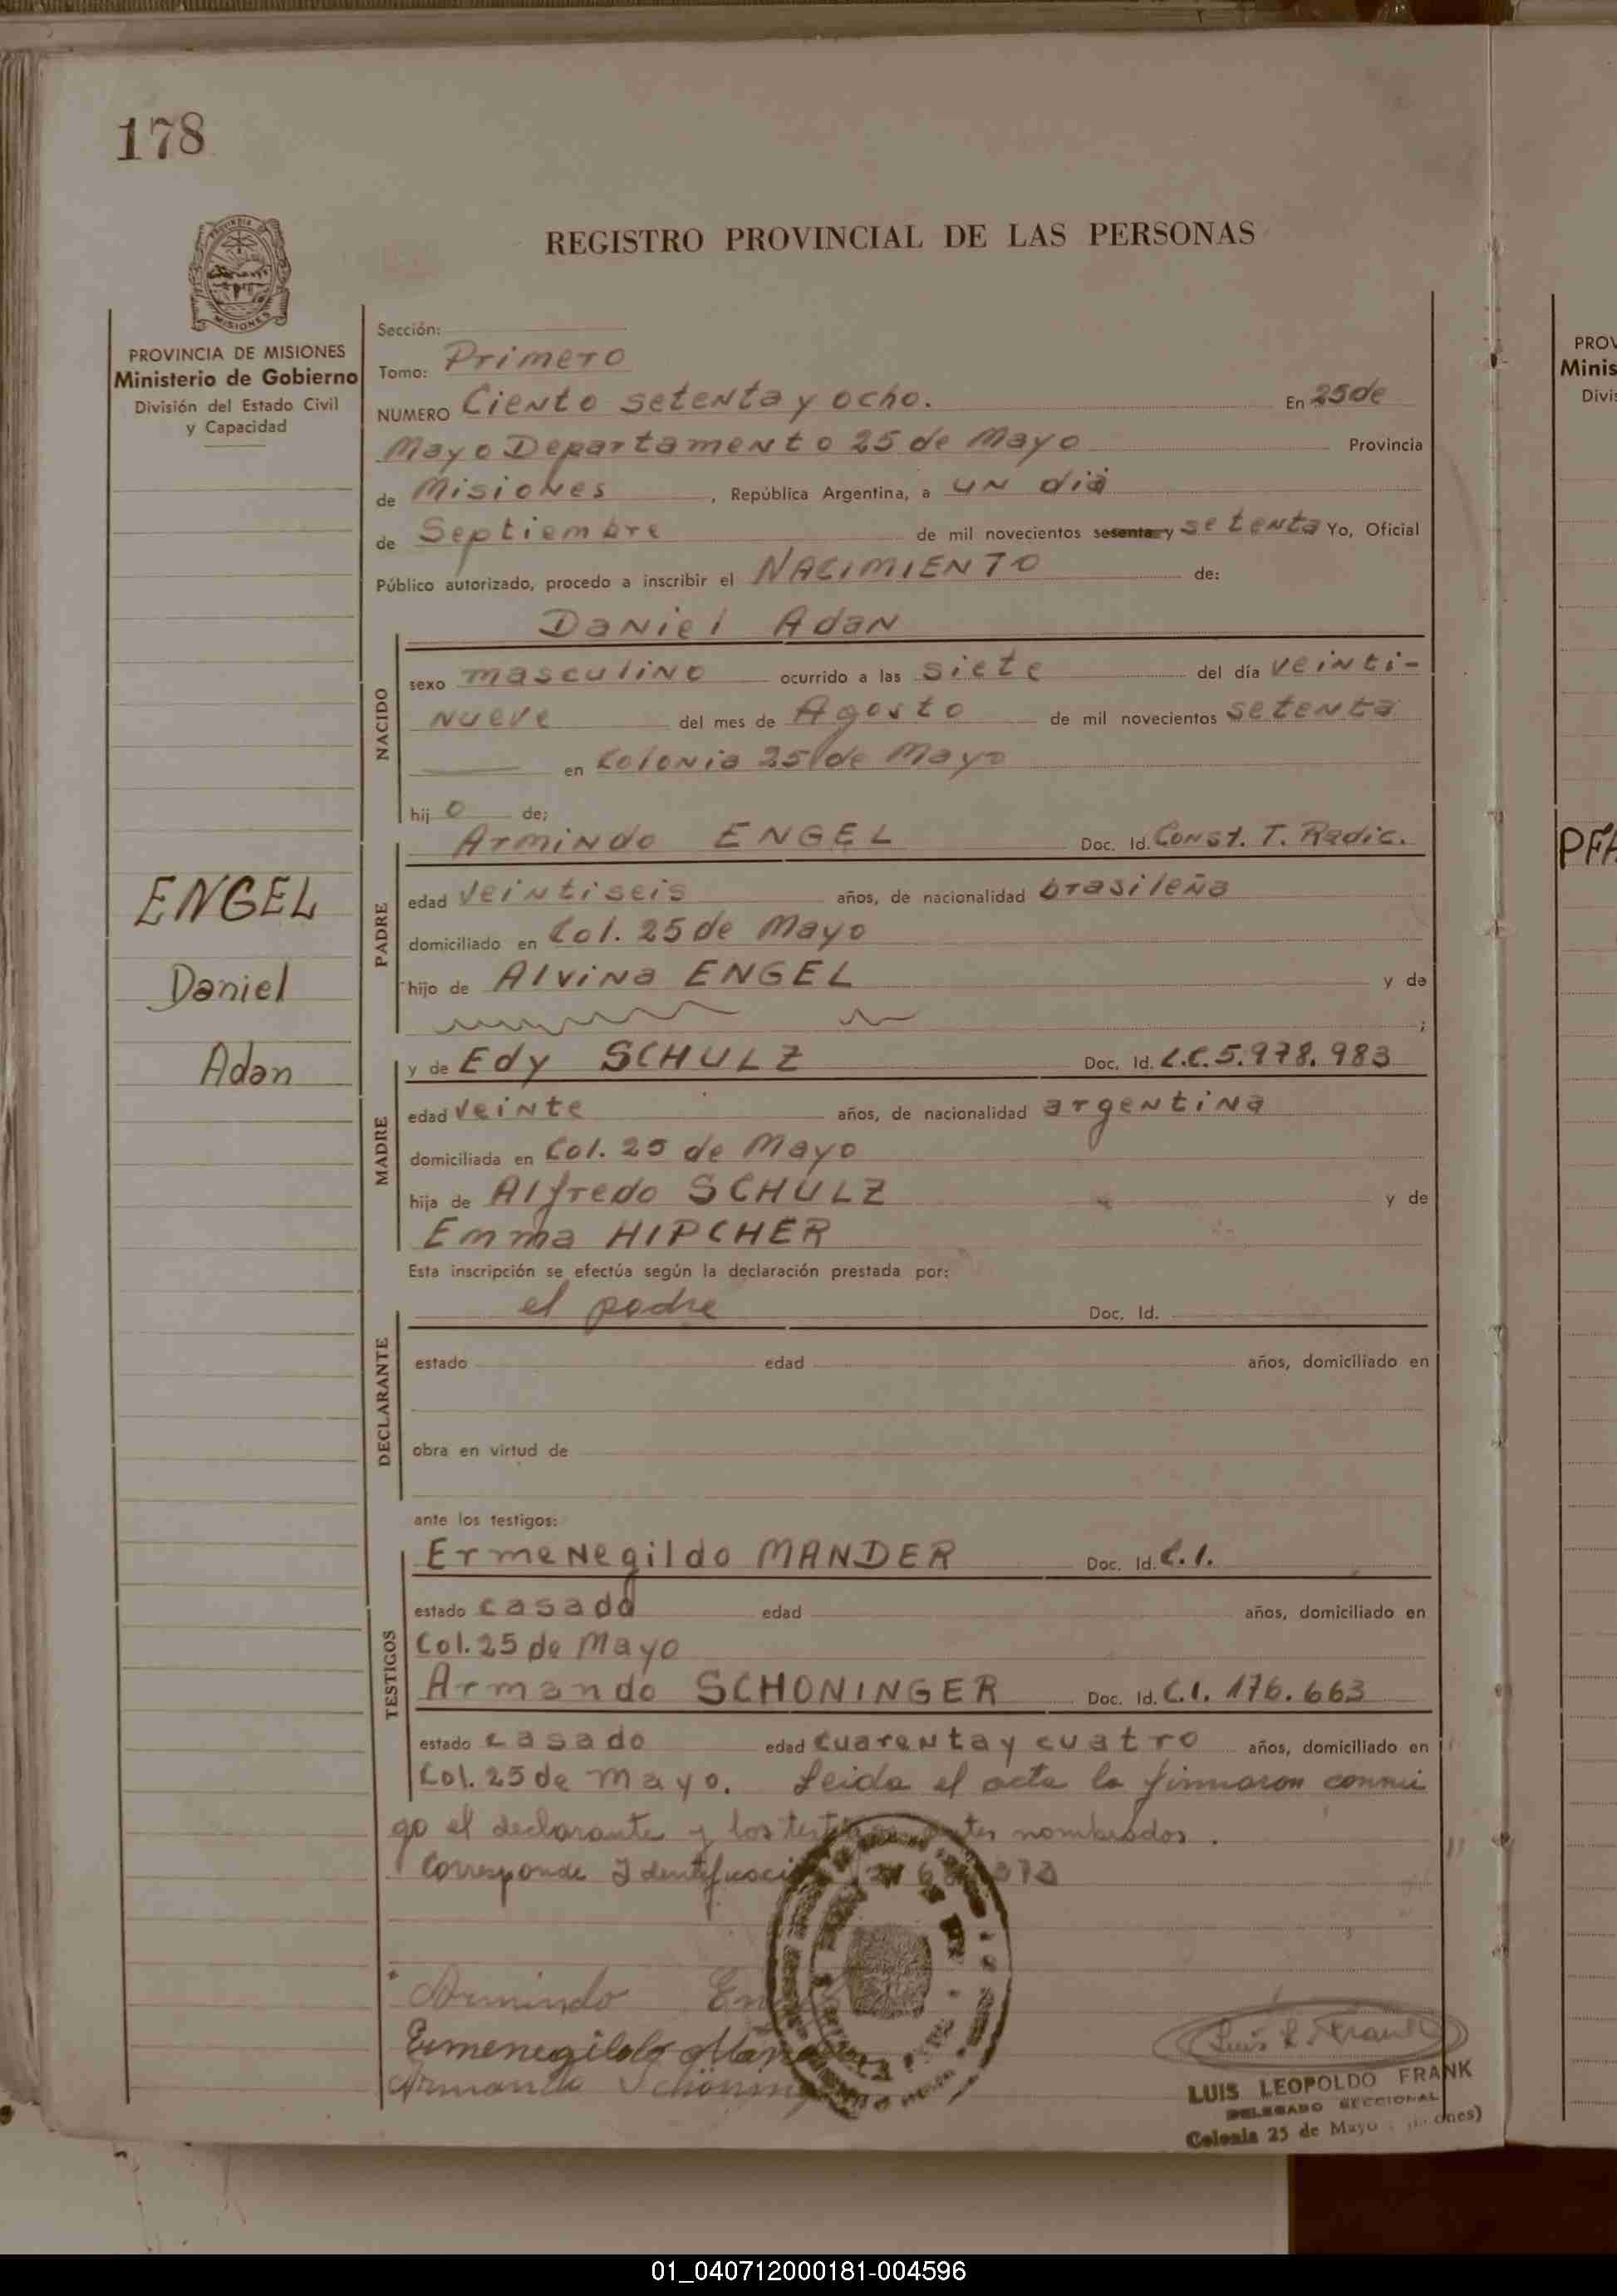 178
REGISTRO PROVINCIAL DE LAS PERSONAS
MISIONES
PROVINCIA DE MISIONES
Ministerio de Gobierno
División del Estado Civil
y Capacidad
ENGEL
Daniel
Adan
Sección:
Tomo: Primero
NUMERO Ciento setenta y ocho. En 25 de
Mayo Departamento 25 de Mayo Provincia
de Misiones, República Argentina, a un dia
de Septiembre de mil novecientos sesenta y setenta Yo, Oficial
Público autorizado, procedo a inscribir el NACIMIENTO de:
Daniel Adan
NACIDO
sexo masculino ocurrido a las siete del día veinti-
nueve del mes de Agosto de mil novecientos setenta
en Colonia 25 de Mayo
hijo de;
PADRE
Armindo ENGEL Doc. Id. Const. T. Radic.
edad veintiseis años, de nacionalidad brasileña
domiciliado en Col. 25 de Mayo
hijo de Alvina ENGEL y de
;
MADRE
y de Edy SCHULZ Doc. Id. L.C. 5.978.983
edad veinte años, de nacionalidad argentina
domiciliada en Col. 25 de Mayo
hija de Alfredo SCHULZ y de
Emma HIPCHER
Esta inscripción se efectúa según la declaración prestada por:
DECLARANTE
el padre Doc. Id.
estado edad años, domiciliado en
obra en virtud de
ante los testigos:
TESTIGOS
Ermenegildo MANDER Doc. Id. C.I.
estado casado edad años, domiciliado en
Col. 25 de Mayo
Armando SCHONINGER Doc. Id. C.I. 176.663
estado casado edad cuarenta y cuatro años, domiciliado en
Col. 25 de Mayo. Leida el acta la firmaron conmi
go el declarante y los testigos antes nombrados.
Corresponde Identificación
Armindo Engel
Ermenegildo Mander
Armando Schöninger
Luis L. Frank
LUIS LEOPOLDO FRANK
DELEGADO SECCIONAL
Colonia 25 de Mayo (Misiones)
PROV
Minis
Divis
PFA
01_040712000181-004596